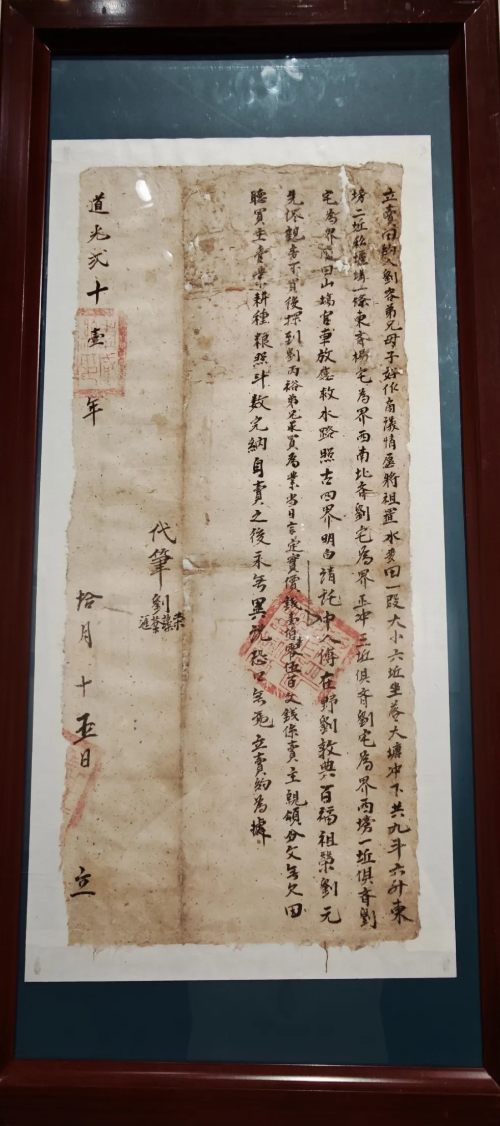 立賣田約人劉容弟兄母子好作商議情愿將祖置水田一段大小六坵坐落大塘冲下共九斗六升東
塝二坵秧塘一條東齊塝宅為界西南北齊劉宅為界正冲三坵俱齊劉宅為界西塝一坵俱齊劉
宅為界隨田山塲官車放應救水路照古四界明白請託中人傅在野劉敦典百福祖榮劉元
先依親房不買後探到劉丙裕弟兄承買為業當日言定賣價錢壹伯零伍百文錢係賣主親領分文無欠田
聽買主管業耕種粮照斗数完納自賣之後永無異說恐口無憑立賣約為據
代筆劉
道光式十壹年
拾月十五日
立